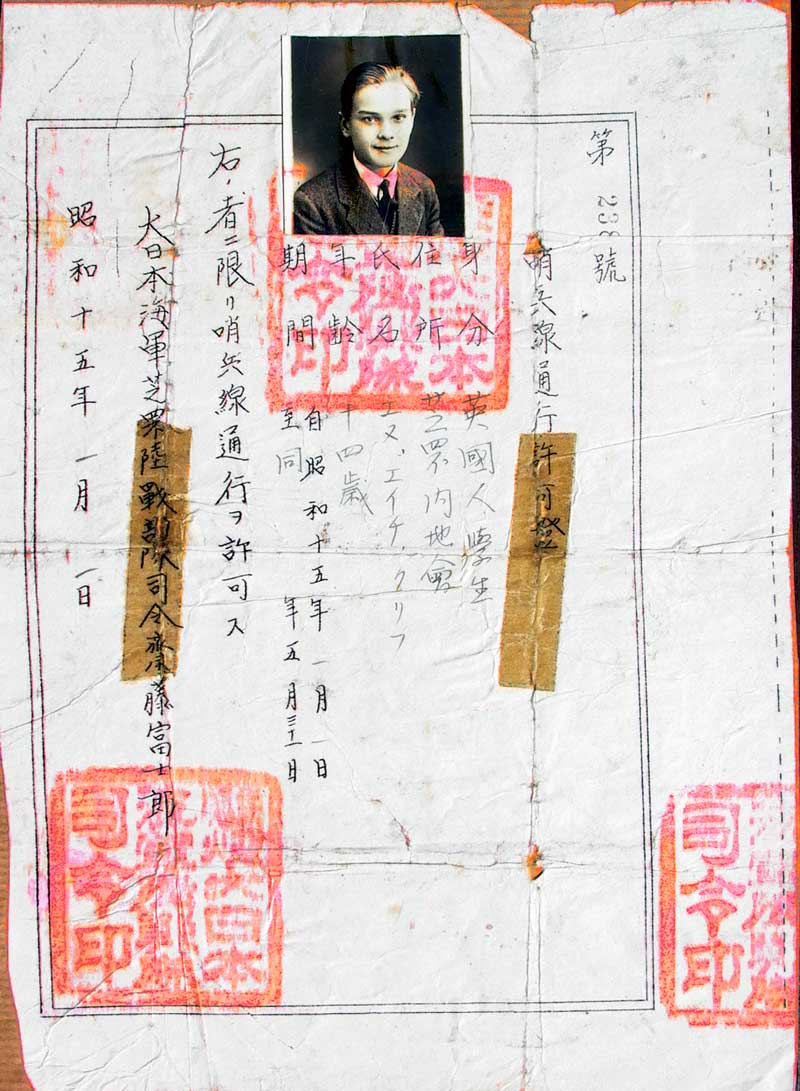 第 238 號
哨兵線通行許可證
身分 英國人學生
住所 芝罘内地會
氏名 エヌ、エイチ、クリフ
年齡 十四歲
期間 自昭和十五年一月一日
至同 年五月三十一日
右ノ者ニ限リ哨兵線通行ヲ許可ス
大日本海軍芝罘陸戰部隊司令齋藤富士郎
昭和十五年一月一日
大日本
司令印
司令印